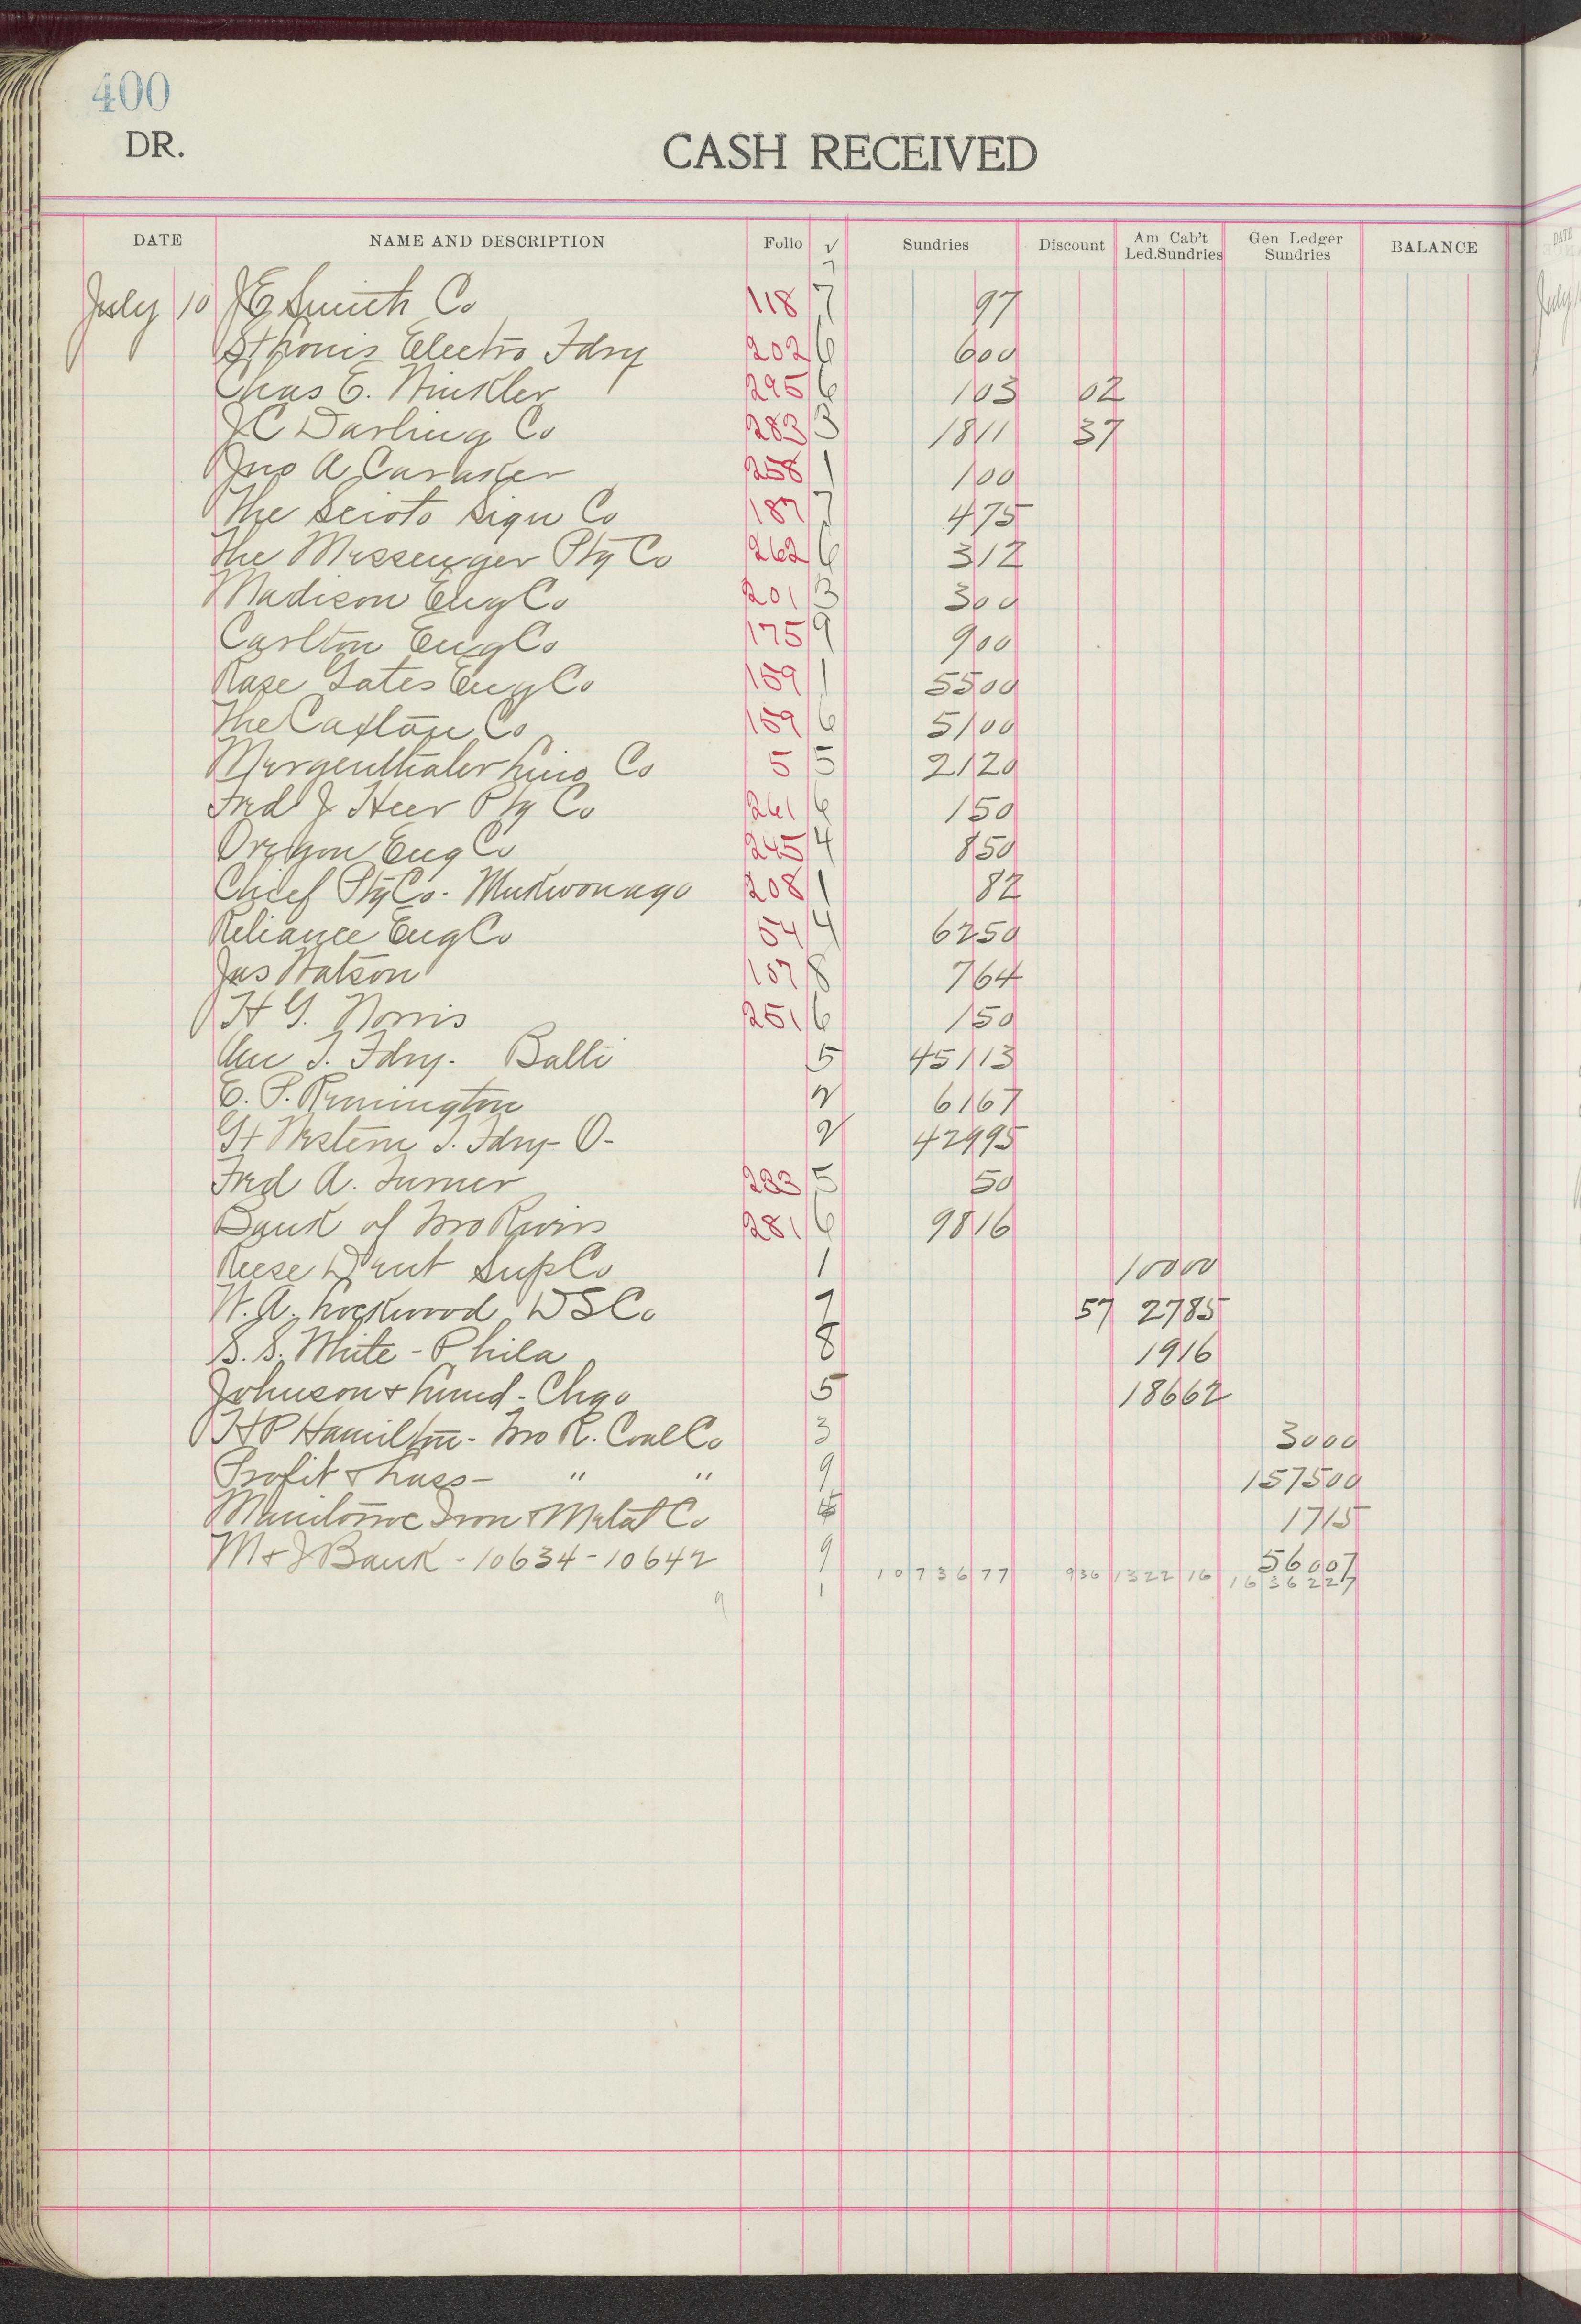 400
DR.
CASH RECEIVED
DATE NAME AND DESCRIPTION Folio √ Sundries Discount Am Cab't Led.Sundries Gen Ledger Sundries BALANCE
July 10 J E Smith Co 118 7 97
St Louis Electro Fdry 202 6 600
Chas E. Winkler 295 6 103 02
J C Darling Co 283 3 1811 37
Jno A 258 1 100
The Scioto Sign Co 187 7 475
The Messenger Ptg Co 262 6 312
Madison Eng Co 201 3 300
Carlton Eng Co 175 9 900
Gates Eng Co 159 1 5500
The Caxton Co 159 6 5100
Mergenthaler Lino Co 5 5 2120
Fred J Heer Ptg Co 261 6 150
Oregon Eng Co 245 4 850
Chief Ptg Co - Mukwonago 208 1 82
Reliance Eng Co 54 4 6250
Jas Watson 107 8 764
H G. Norris 251 6 150
Am T. Fdry - Balti 5 45113
E. P. Remington 2 6167
Gt Western T. Fdry - O - 2 42995
Fred A. Turner 283 5 50
Bank of Two Rivers 281 6 9816
Reese Dent Sup Co 1 10000
W. A. Lockwood DS Co 7 57 2785
S. S. White - Phila 8 1916
Johnson & Lund - Chgo 5 18662
H P Hamilton - Two R. Coal Co 3 3000
Profit & Loss - " " 9 157500
Manitowoc Iron & Metal Co 1715
M & J Bank - 10634 - 10642 9 56007
9 1 1073677 936 132216 1636227